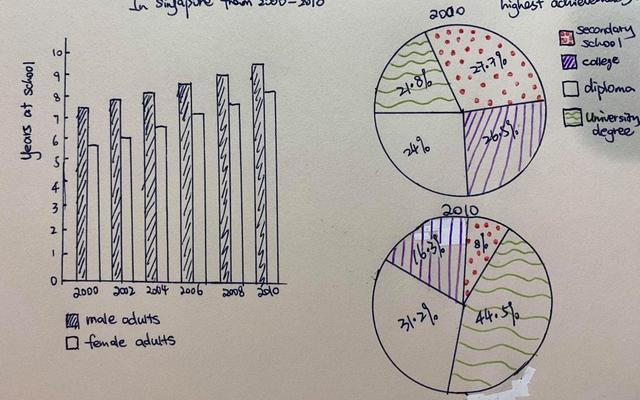 In Singapore from 2000-2010
highest
Years at school
10
9
8
7
6
5
4
3
2
1
0
2000 2002 2004 2006 2008 2010
male adults
female adults
2000
27.7%
21.8%
24%
26.5%
secondary
school
college
diploma
University
degree
2010
16.3%
8%
31.2%
44.5%